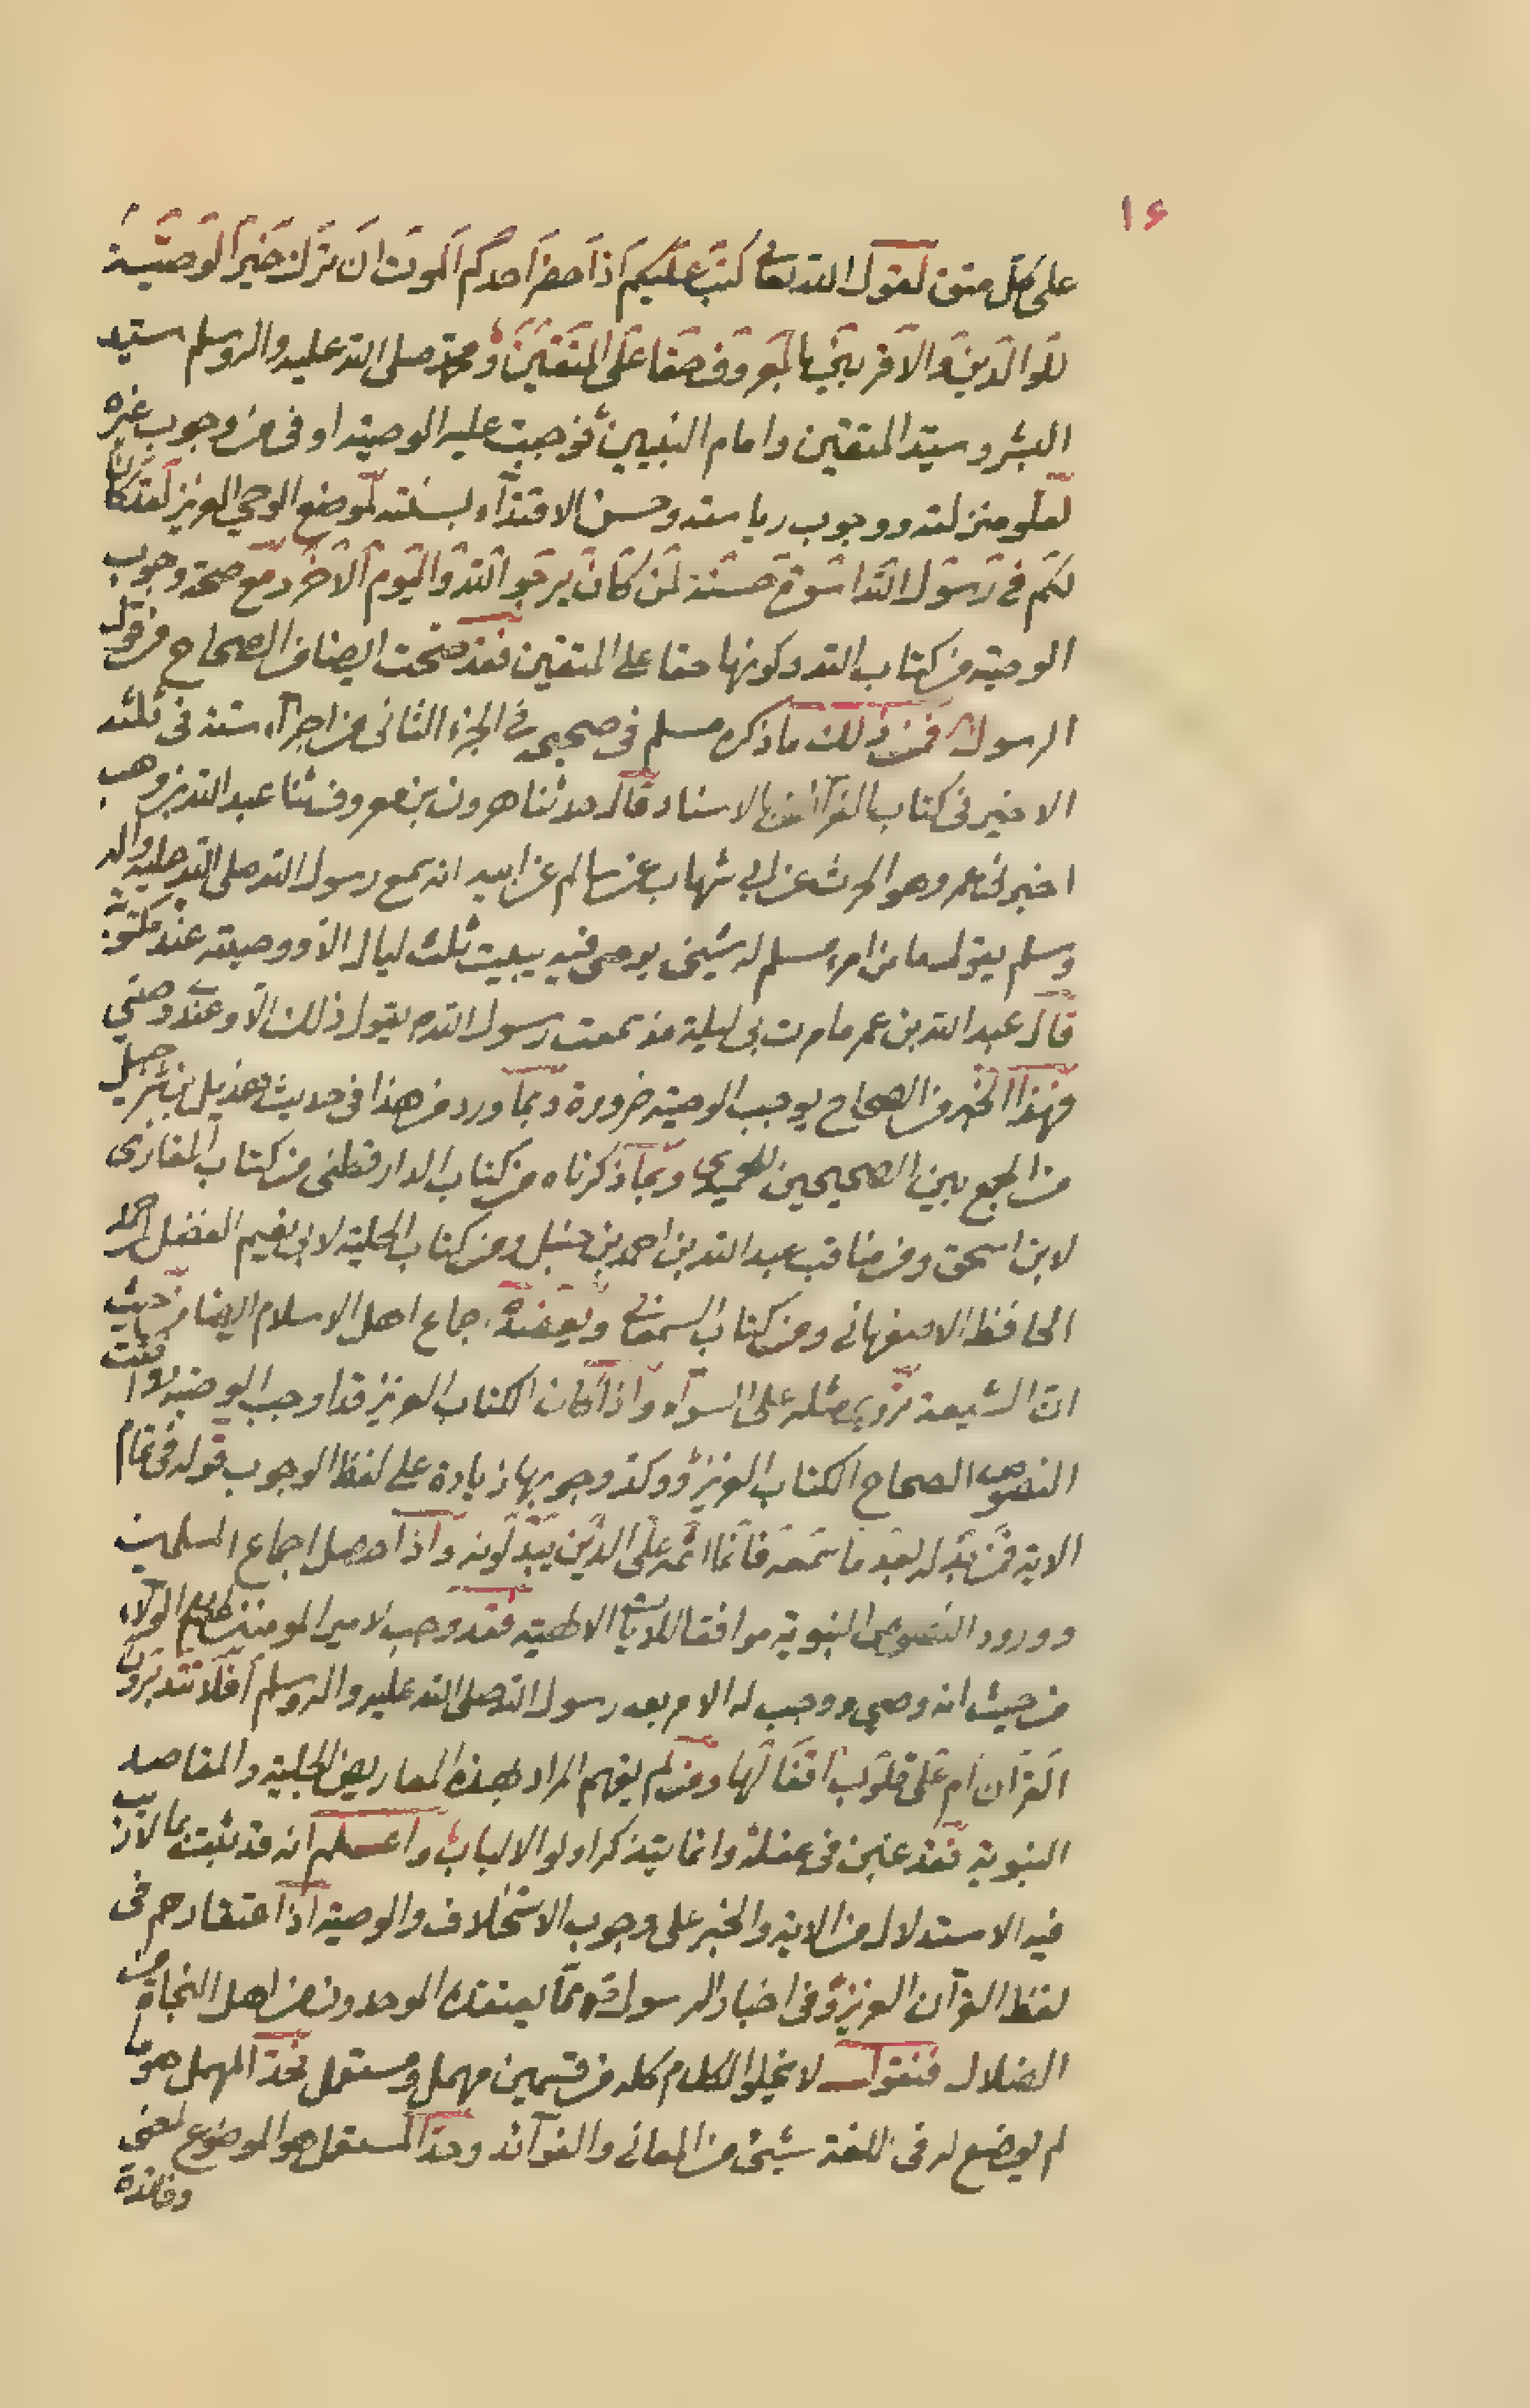 ١٤
على كل متق لقول الله تعالى كتب عليكم اذا حضر احدكم الموت ان ترك خيرا الوصية
للوالدين والاقربين بالمعروف حقا على المتقين ومحمد صلى الله عليه واله وسلم سيد
البشر وسيد المتقين وامام النبيين فوجبت عليه الوصية اوفى من وجوب غيره
لعلو منزلته ووجوب رياسته وحسن الاقتداء بسنته لموضع الوحي العزيز لقد كان
لكم في رسول الله اسوة حسنة لمن كان يرجو الله واليوم الاخر ومع صحة وجوب
الوصية من كتاب الله وكونها حقا على المتقين فقد صحت ايضا من الصحاح من قول
الرسول فمن ذلك ما ذكره مسلم في صحيحه في الجزء الثاني من اجزاء ستة في ثلثه
الاخير في كتاب الفرائض بالاسناد قال حدثنا هرون بن معروف ثنا عبد الله بن وهب
اخبرني عمرو هو الحرث عن ابي شهاب عن سالم عن ابيه انه سمع رسول الله صلى الله عليه واله
وسلم يقول ما من امرء مسلم له شيئ يوصى فيه يبيت ثلث ليال الا ووصيته عنده مكتوبة
قال عبد الله بن عمر ما مرت بي ليلة مذ سمعت رسول الله يقول ذلك الا وعندي وصيتي
فهذا الخبر من الصحاح يوجب الوصية ضرورة وبما ورد من هذا في حديث هذيل بن شرحبيل
من الجمع بين الصحيحين للحميدي وبما ذكرناه من كتاب الدارقطني من كتاب المغازي
لابن اسحق ومن مناقب عبد الله بن احمد بن حنبل ومن كتاب الحلية لابي نعيم الفضل احمد
الحافظ الاصفهاني ومن كتاب السمعاني ويعضده اجماع اهل الاسلام ايضا من حيث
ان الشيعة تروي مثله على السواء واذا كان الكتاب العزيز قد اوجب الوصية ووافقت
النصوص الصحاح الكتاب العزيز ووكد وجوبها زيادة على لفظ الوجوب قوله في تمام
الاية فمن بدله بعد ما سمعه فانما اثمه على الذين يبدلونه واذا حصل اجماع المسلمين
وورود النصوص النبوية موافقا للايات الالهية فقد وجب لامير المومنين الولاء
من حيث انه وصي ووجب له الامر بعد رسول الله صلى الله عليه واله وسلم افلا تتدبرون
القران ام على قلوب اقفالها ومن لم يفهم المراد بهذه المعاريض الجلية والمقاصد
النبوية فقد غبن في عقله وانما يتذكر اولو الالباب واعلم انه قد ثبت بما لا ريب
فيه الاستدلال من الاية والخبر على وجوب الاستخلاف والوصية اذا اعتقادهم في
لفظ القرآن العزيز وفي اخبار الرسول مما يعتقده الموحدون من اهل النجاة من
الضلال فنقول لا يخلو الكلام كله من قسمين مهمل ومستعمل فحد المهمل هو ما
لم يوضع له في اللغة شيئ من المعاني والفوائد وحد المستعمل هو الموضوع لمعنى
وفائدة